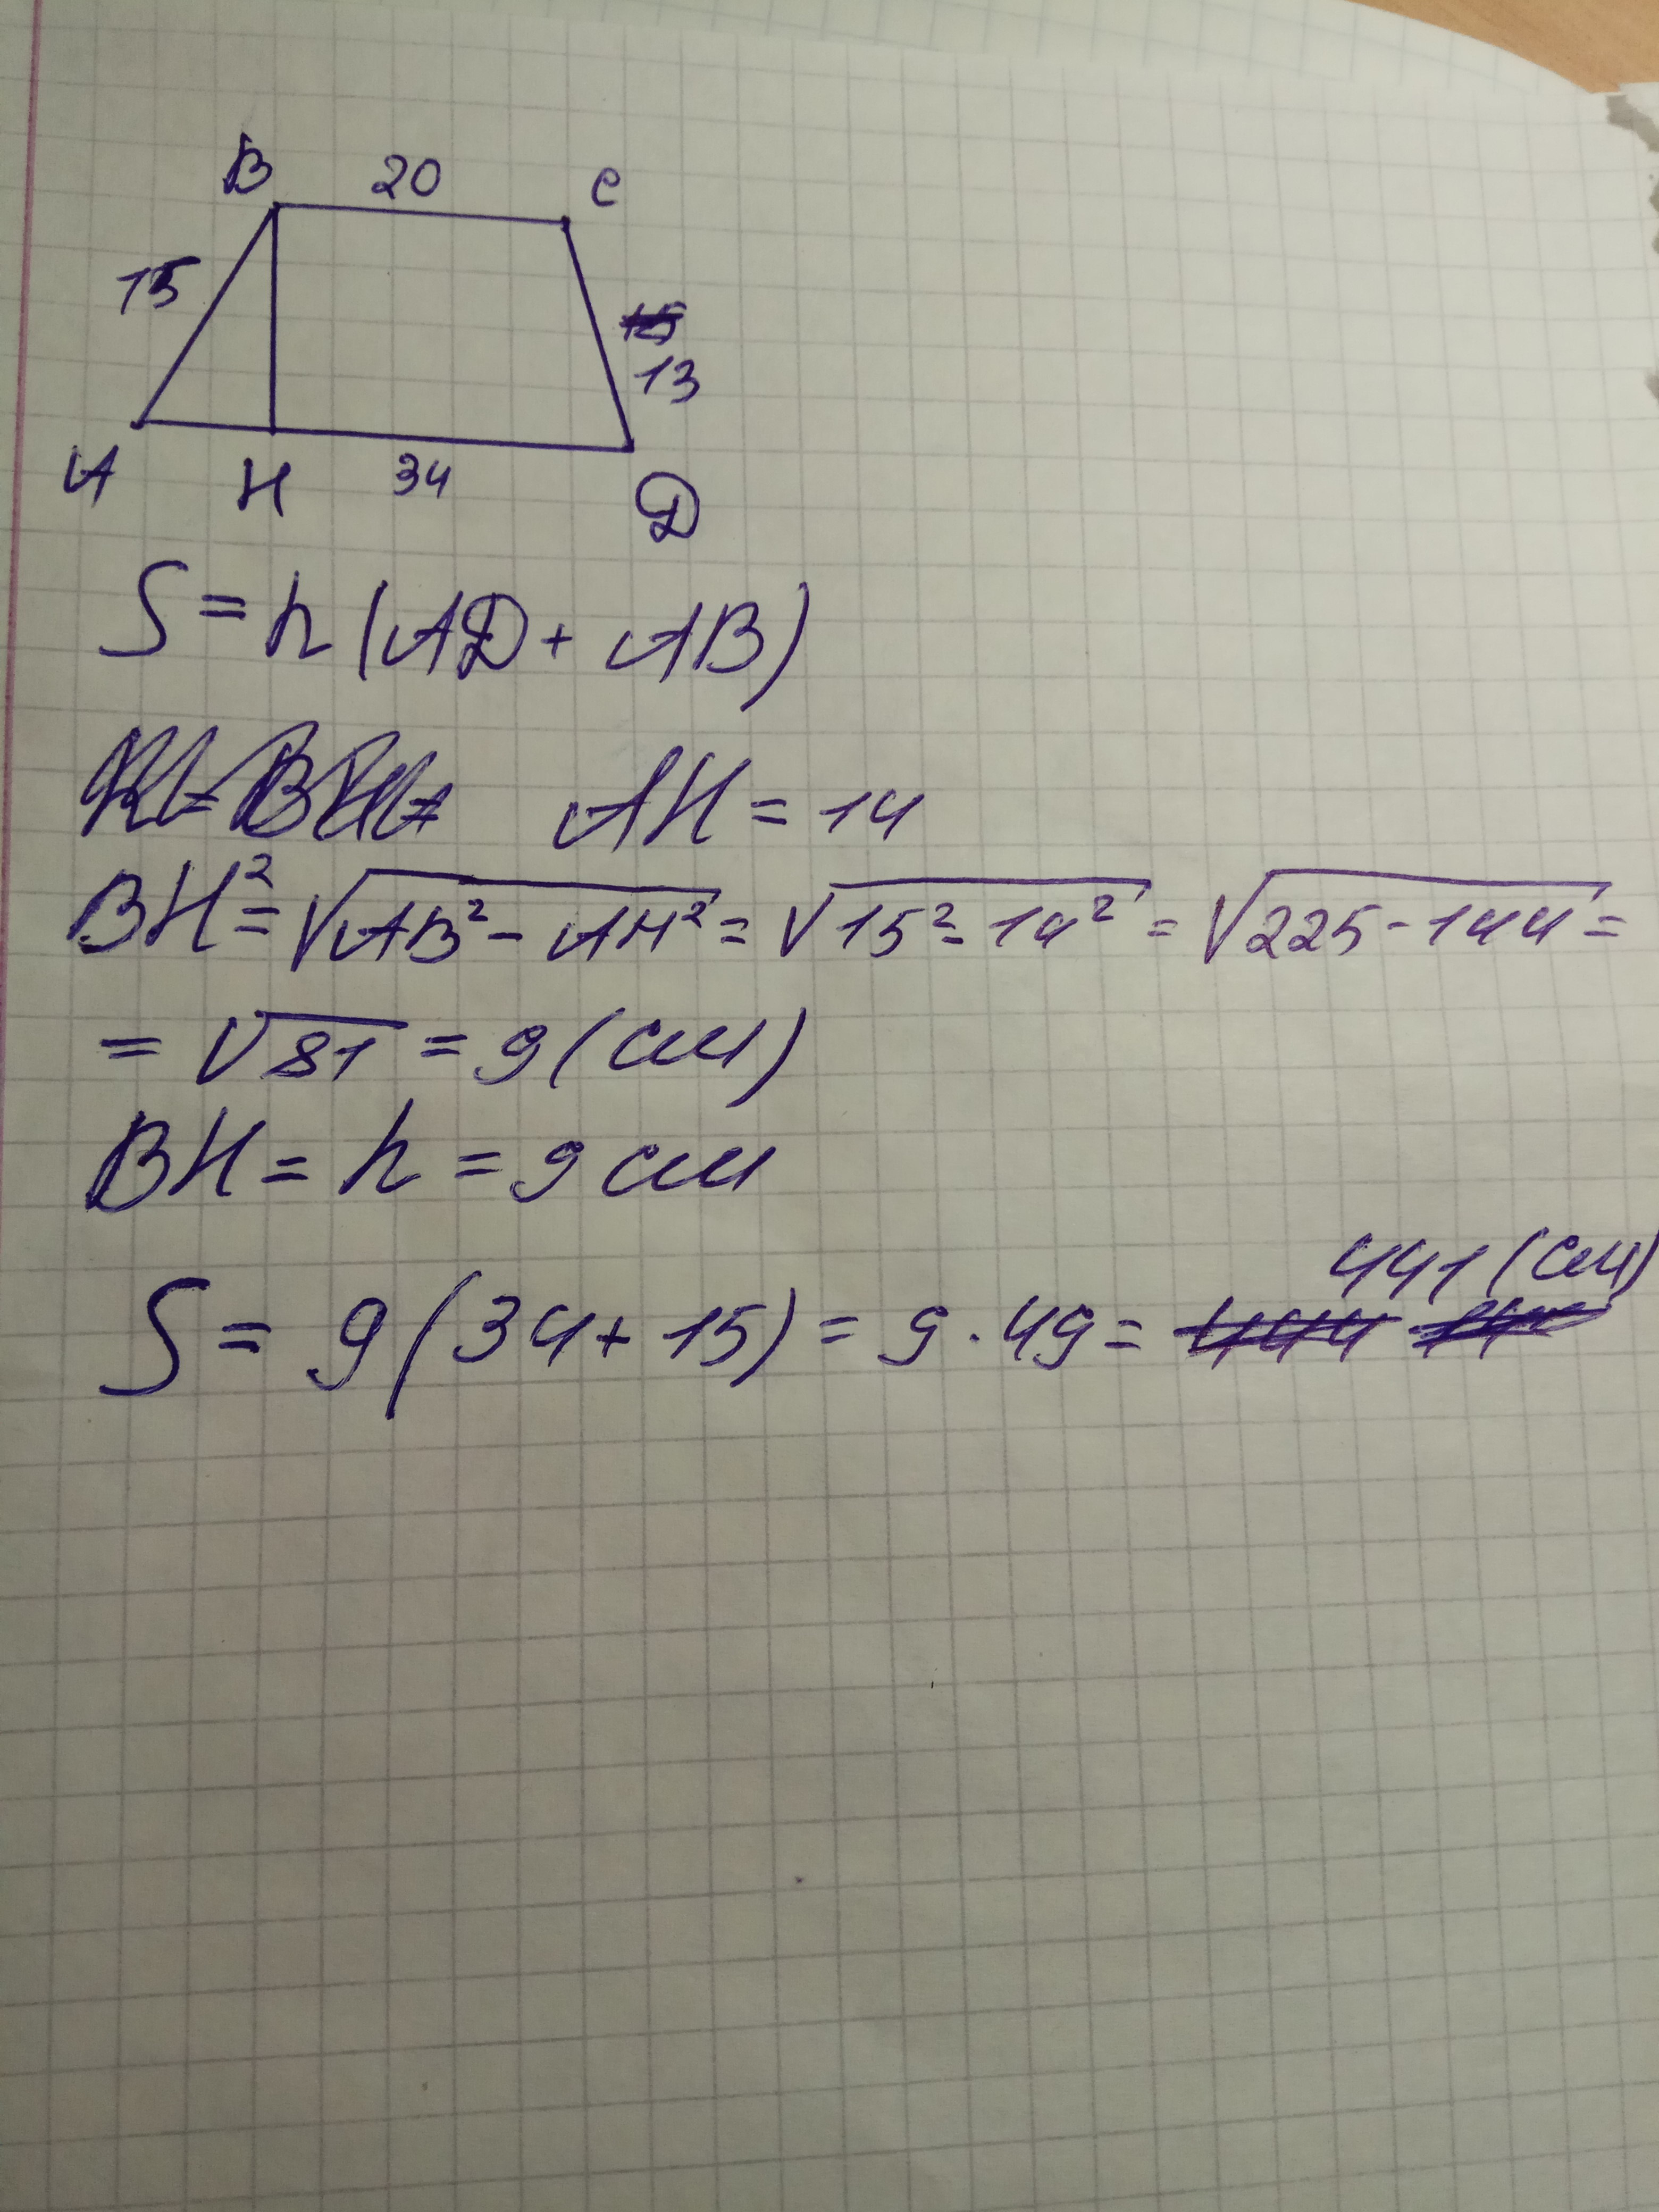 B 20 C
15
15
13
A H 34 D
S = h (AD + AB)
AH = 14
BH² = √AB² - AH² = √15² - 14² = √225 - 144 =
= √81 = 9 (см)
BH = h = 9 см
441 (см)
S = 9 (34 + 15) = 9 · 49 = 444